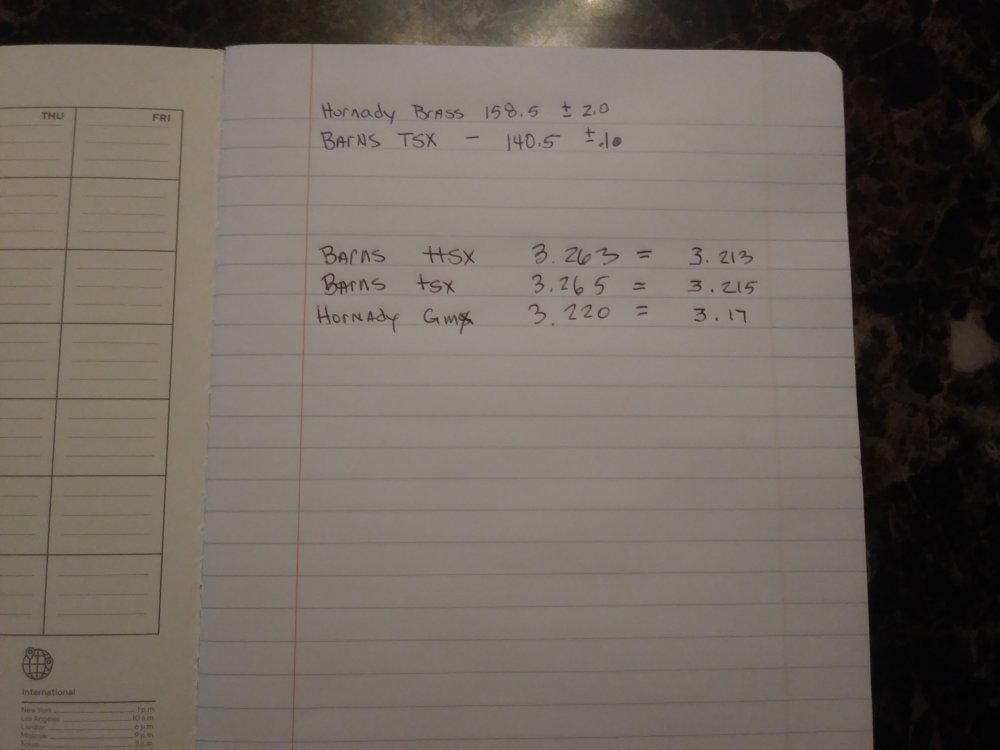 THU FRI
Hornady Brass 158.5 ± 2.0
BArNS TSX - 140.5 ±.10
BArns ttSX 3.263 = 3.213
BArns tsx 3.265 = 3.215
HorNAdy Gmx 3.220 = 3.17
International
New York 1 p.m.
Los Angeles 10 a.m.
London 6 p.m.
Moscow 9 p.m.
Tokyo